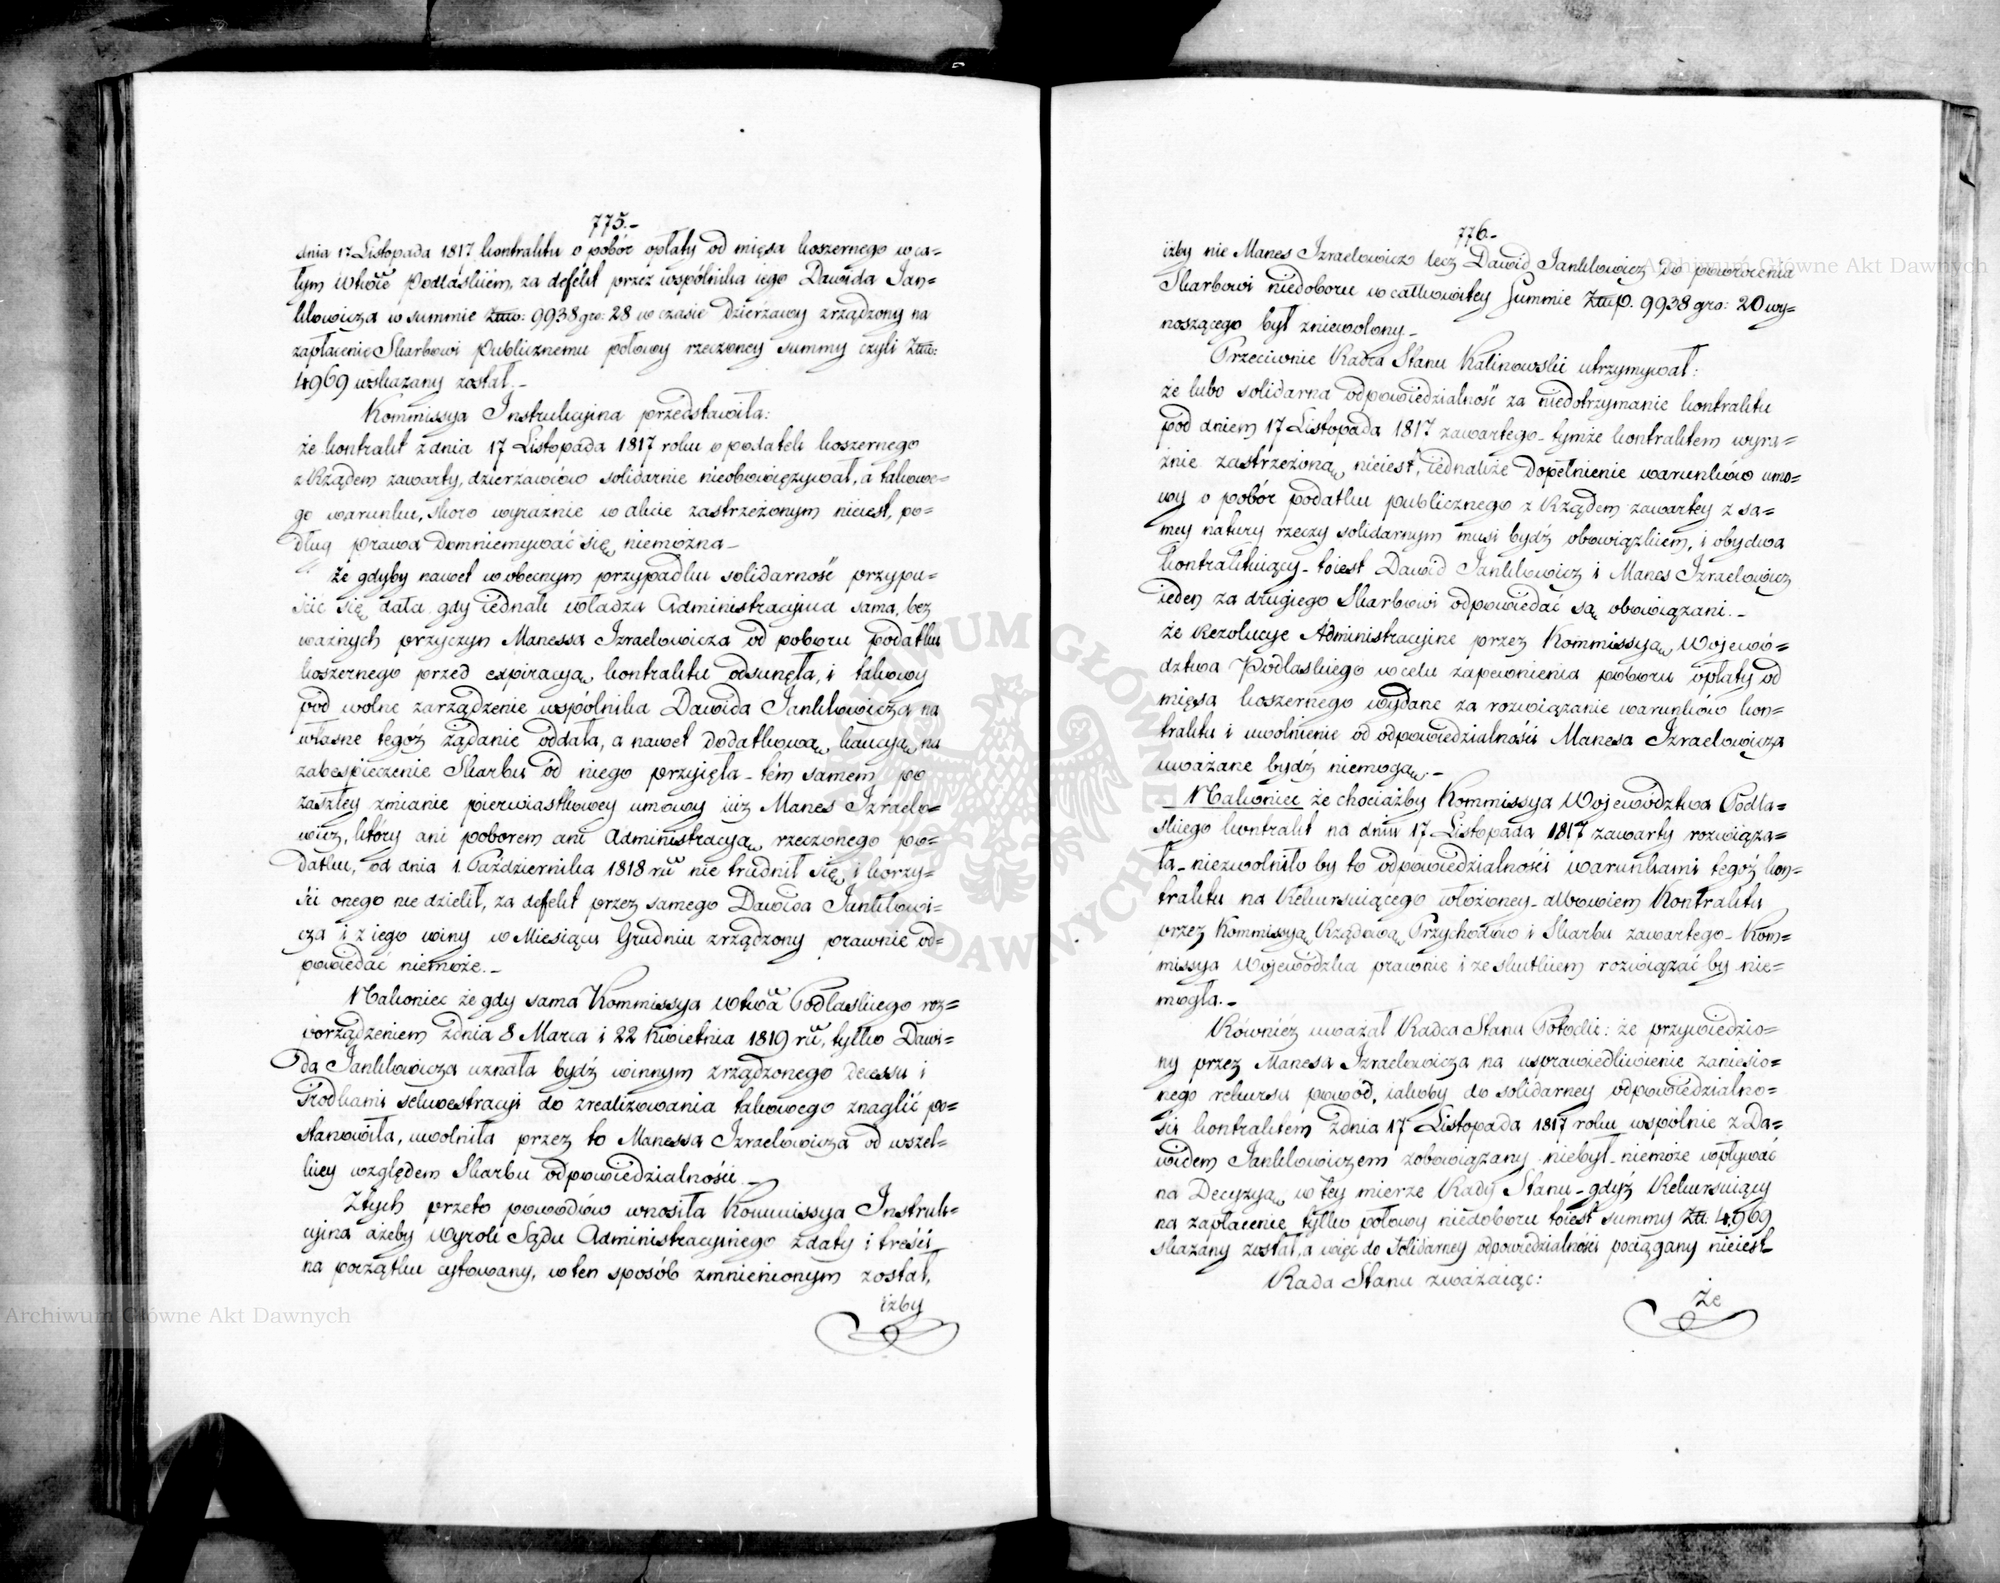 775.-
dnia 17 Listopada 1817 kontraktu o pobór opłaty od mięsa koszernego w ca=
łym Wtwie Podlaskiem, za defekt przez wspólnika iego Dawida Jan=
klowicza w summie Złtw: 9938 gro: 28 w czasie dzierżawy zrządzony na
zapłacenie Skarbowi Publicznemu połowy rzeczoney summy czyli Złtw:
4969 wskazany został.-
Kommissya Instrukcyina przedstawiła:
że kontrakt z dnia 17 Listopada 1817 roku o podatek koszernego
z Rządem zawarty, dzierzawców solidarnie nieobowięzywał, a takowe=
go warunku, skoro wyraźnie w akcie zastrzeżonym nieiest, po=
dług prawa domniemywać się niemożna_
że gdyby nawet w obecnym przypadku solidarność przypu=
ścić się dała gdy iednak władza Administracyina sama, bez
ważnych przyczyn Manessa Izraelowicza od poboru podatku
koszernego przed expiracyą kontraktu odsunęła, i takowy
pod wolne zarządzenie wspólnika Dawida Janklowicza na
własne tegoż żądanie oddała, a nawet dodatkową kaucyą na
zabespieczenie Skarbu od niego przyięła_ tém samem po
zaszłey zmianie pierwiastkowey umowy iuż Manes Izraelo=
wicz, który ani poborem ani Administracyą rzeczonego po=
datku, od dnia 1 Października 1818 ru nie trudnił się, i korzy=
ści onego nie dzielił, za defekt przez samego Dawida Janklowi=
cza i z iego winy w Miesiącu Grudniu zrządzony prawnie od=
powiedać niemoże._
Nakoniec że gdy sama Kommissya Wtwa Podlaskiego roz=
porządzeniem z dnia 8 Marca i 22 Kwietnia 1819 ru, tylko Dawi=
da Janklowicza uznała bydź winnym zrządzonego decessu i
środkami sekwestracyi do zrealizowania takowego znaglić po=
stanowiła, uwolniła przez to Manessa Izraelowicza od wszel=
kiey względem Skarbu odpowiedzialności._
Z tych przeto powodów wnosiła Kommissya Instruk=
cyina ażeby wyrok Sądu Administracyinego z daty i treści
na początku cytowany, w ten sposób zmnienionym został,
iżby
776.-
iżby nie Manes Izraelowicz lecz Dawid Janklowicz do powrocenia
Skarbowi niedoboru w całkowitey summie Złtp. 9938 gro: 20 wy=
noszącego był zniewolony_
Przeciwnie Radca Stanu Kalinowski utrzymywał:
że lubo solidarna odpowiedzialność za niedotrzymanie kontraktu
pod dniem 17 Listopada 1817 zawartego_ tymże kontraktem wyra=
źnie zastrzeżoną nieiest, iednakże dopełnienie warunków umo=
wy o pobór podatku publicznego z Rządem zawartey z sa=
mey natury rzeczy solidarnym musi bydź obowiązkiem, i obydwa
kontraktuiący_ toiest Dawid Janklowicz i Manes Izraelowicz
ieden za drugiego Skarbowi odpowiedać są obowiązani._
że Rezolucye Administracyine przez Kommissyą Wojewó=
dztwa Podlaskiego w celu zapewnienia poboru opłaty od
mięsa koszernego wydane za rozwiązanie warunków kon=
traktu i uwolnienie od odpowiedzialności Manesa Izraelowicza
uważane bydź niemogą._
Nakoniec że chociażby Kommissya Województwa Podla=
skiego kontrakt na dniu 17 Listopada 1817 zawarty rozwiąza=
ła_ niezwolniło by to odpowiedzialności warunkami tegoż kon=
traktu na Rekursuiącego włożoney_ albowiem Kontraktu
przez Kommissyą Rządową Przychodów i Skarbu zawartego_ Kom=
missya Wojewódzka prawnie i ze skutkiem rozwiązać by nie=
mogła._
Równiéż uważał Radca Stanu Potocki: że przywiedzio=
ny przez Manesa Izraelowicza na usprawiedliwienie zaniesio=
nego rekursu powód, iakoby do solidarney odpowiedzialno=
ści kontraktem z dnia 17 Listopada 1817 roku wspólnie z Da=
widem Janklowiczem zobowiązany niebył_ niemoże wpływać
na Decyzyą w tey mierze Rady Stanu_ gdyż Rekursuiący
na zapłacenie tylko połowy niedoboru toiest summy Zł. 4,969
skazany został, a więc do solidarney odpowiedzialności pociągany nieiest_
Rada Stanu zważaiąc:
Że
Archiwum Główne Akt Dawnych
Archiwum Główne Akt Dawnych
ARCHIWUM GŁÓWNE AKT DAWNYCH